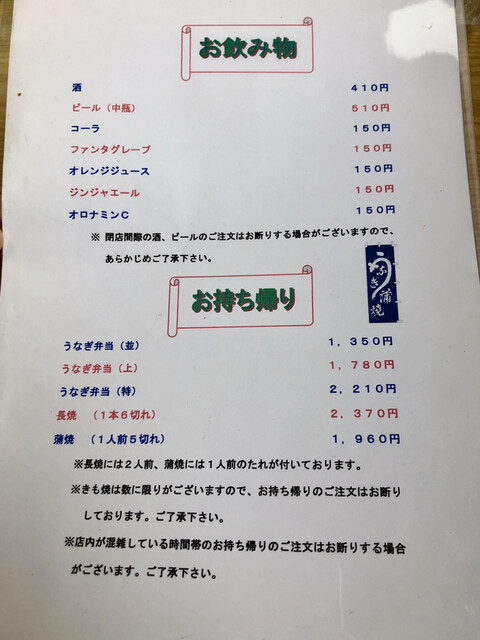 お飲み物
酒 ４１０円
ビール（中瓶） ５１０円
コーラ １５０円
ファンタグレープ １５０円
オレンジジュース １５０円
ジンジャエール １５０円
オロナミンＣ １５０円
※ 閉店間際の酒、ビールのご注文はお断りする場合がございますので、
あらかじめご了承下さい。
うなぎ蒲焼
お持ち帰り
うなぎ弁当（並） １，３５０円
うなぎ弁当（上） １，７８０円
うなぎ弁当（特） ２，２１０円
長焼 （１本６切れ） ２，３７０円
蒲焼 （１人前５切れ） １，９６０円
※長焼には２人前、蒲焼には１人前のたれが付いております。
※きも焼は数に限りがございますので、お持ち帰りのご注文はお断り
しております。ご了承下さい。
※店内が混雑している時間帯のお持ち帰りのご注文はお断りする場合
がございます。ご了承下さい。